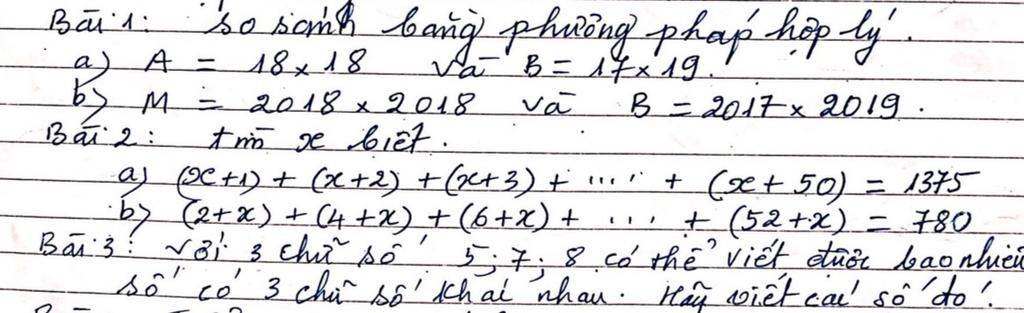 Bài 1: So sánh bằng phương pháp hợp lý.
a) A = 18 x 18 và B = 17 x 19.
b) M = 2018 x 2018 và B = 2017 x 2019.
Bài 2: tìm x biết.
a) (x+1) + (x+2) + (x+3) + ..... + (x+50) = 1375
b) (2+x) + (4+x) + (6+x) + .... + (52+x) = 780
Bài 3: Với 3 chữ số 5; 7; 8 có thể viết được bao nhiêu
số có 3 chữ số khác nhau. Hãy viết các số đó.